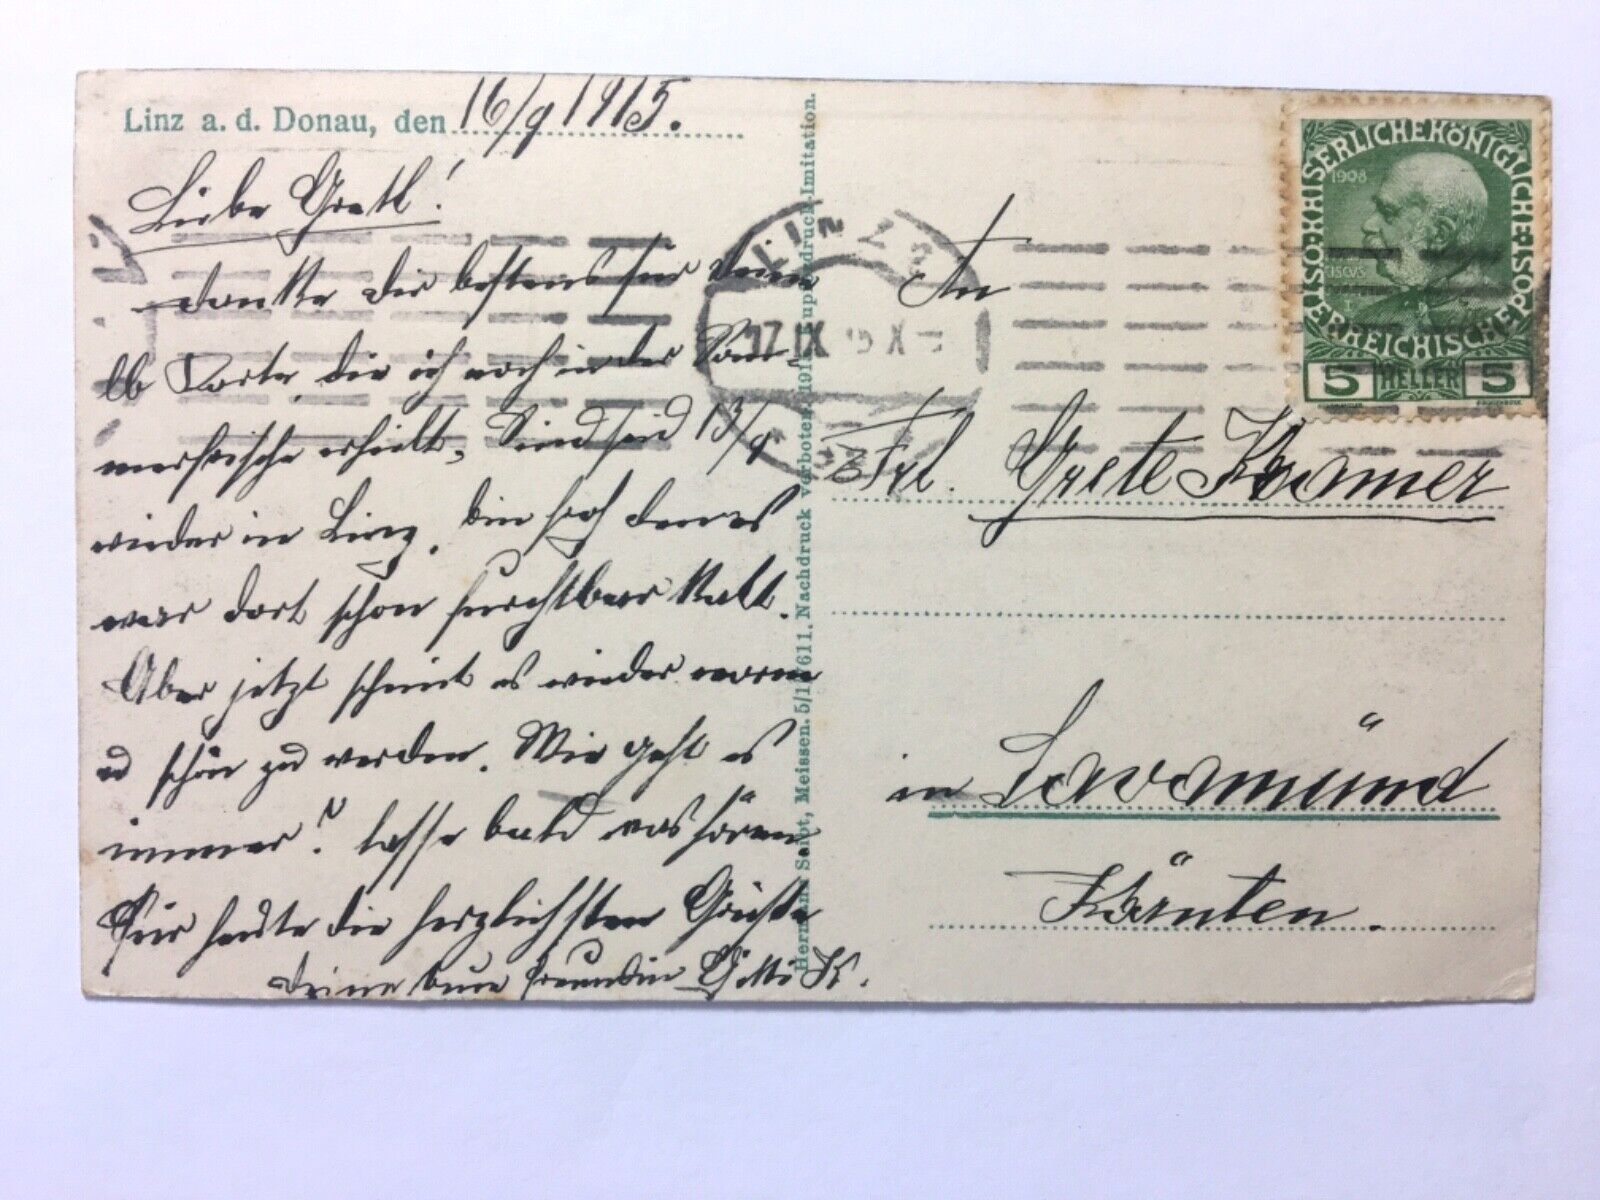 Linz a. d. Donau, den 16/9 1915.
Liebe Gretl!
danke dir bestens für deine
lb Karte, die ich noch in der Som-
merfrische erhielt. Sind seid 13/9
wieder in Linz, bin froh denn es
war dort schon furchtbar kalt.
Aber jetzt scheint es wieder warm
u schön zu werden. Wie geht es
immer? lasse bald was hören.
Für heute die herzlichsten Grüße
deine Freundin K.
Hermann Seibt, Meissen. 5/17611. Nachdruck verboten. 191 Kupferdruck-Imitation.
LINZ
17 IX 15 X
KAISERLICHE KÖNIGLICHE
ÖSTERREICHISCHE POST
1908
5 HELLER 5
An
Frl. Grete Kramer
in Lavamünd
Kärnten.